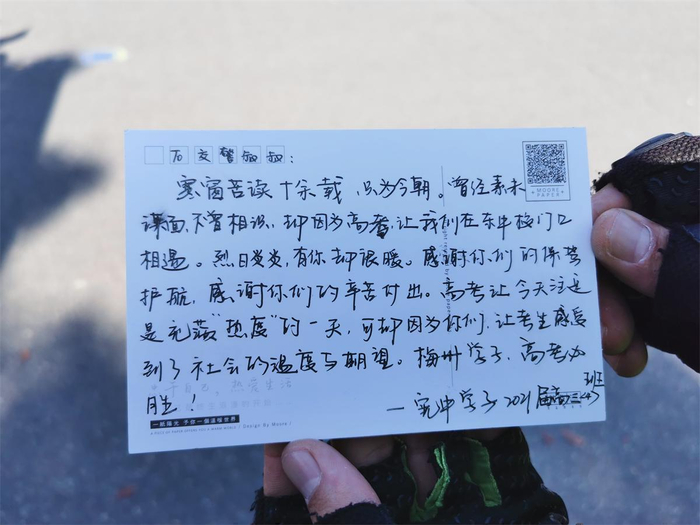 To 交警叔叔：
寒窗苦读十余载，只为今朝。曾经素未
谋面，不曾相识，却因为高考，让我们在东中校门口
相遇。烈日炎炎，有你却很暖。感谢你们的保驾
护航，感谢你们的辛苦付出。高考让今天注定
是充满“热度”的一天，可却因为你们，让考生感受
到了社会的温度与期望。梅州学子，高考必
胜！
—宪中学子2021届高三(4)班
MOORE
PAPER
一紙陽光 予你一個溫暖世界
Design By Moore